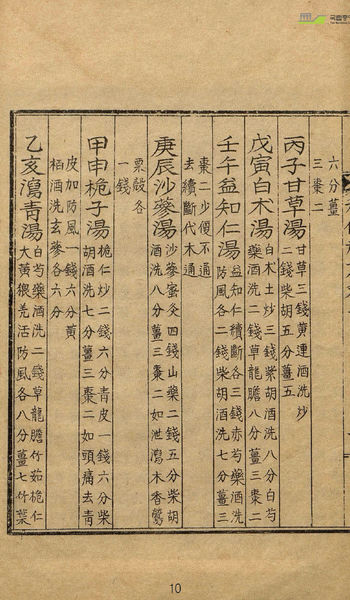 六分薑
三棗二
丙子甘草湯 甘草三錢黄連酒洗炒
二錢柴胡五分薑五
戊寅白木湯 白木土炒三錢柴胡酒洗八分白芍
藥酒洗二錢草龍膽八分薑三棗二
壬午益知仁湯 益知仁續斷各三錢赤芍藥酒洗
防風各二錢柴胡酒洗七分薑三
棗二少便不通
去續斷代木通
庚辰沙參湯 沙參蜜灸四錢山藥二錢五分柴胡
酒洗八分薑三棗二如泄瀉木香鶯
粟殼各
一錢
甲申梔子湯 梔仁炒二錢六分青皮一錢六分柴
胡酒洗七分薑三棗二如頭痛去青
皮加防風一錢六分黄
栢酒洗玄參各六分
乙亥瀉青湯 白芍藥酒洗二錢草龍膽竹茹梔仁
大黄羌活防風各八分薑七竹葉
10